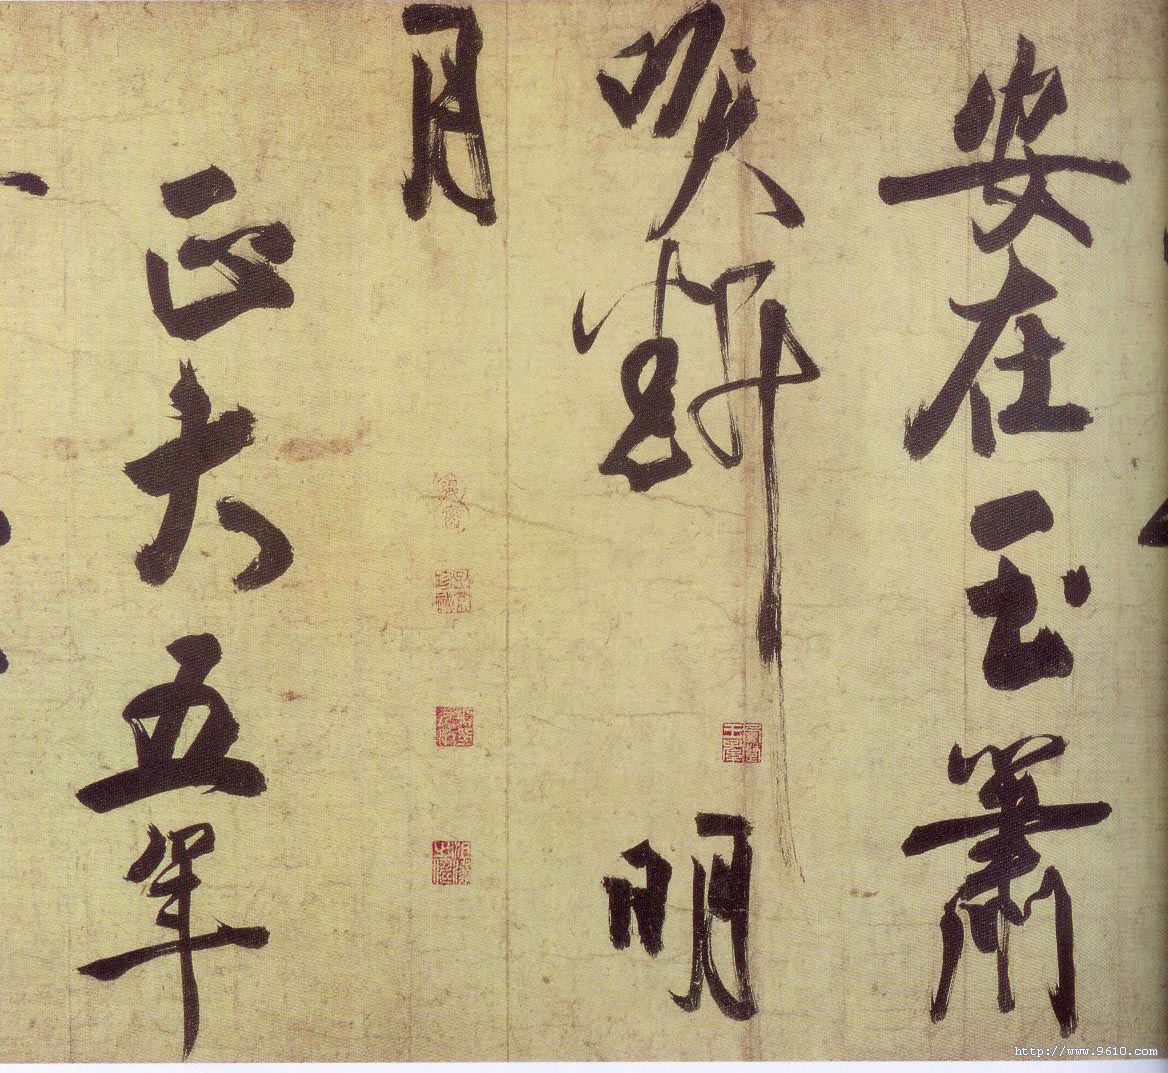 安在玉簫
吹斷明
月
正大五年
http://www.9610.com